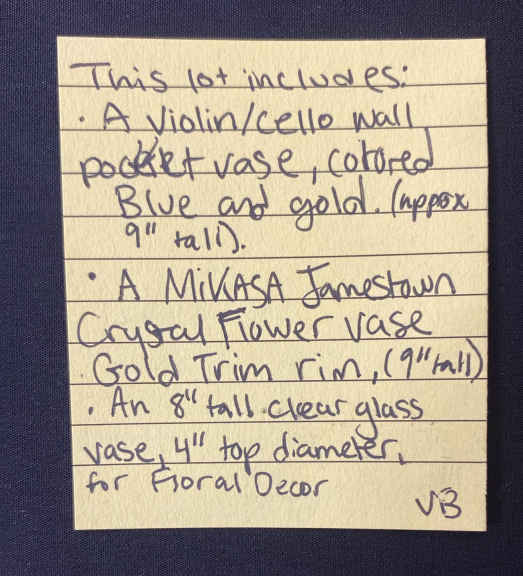 This lot includes:
· A Violin/cello wall
pocket vase, colored
Blue and gold. (appox
9" tall).
· A MiKASA Jamestown
Crysal Flower vase
Gold Trim rim, (9" tall)
· An 8" tall clear glass
vase, 4" top diameter,
for Floral Decor
VB